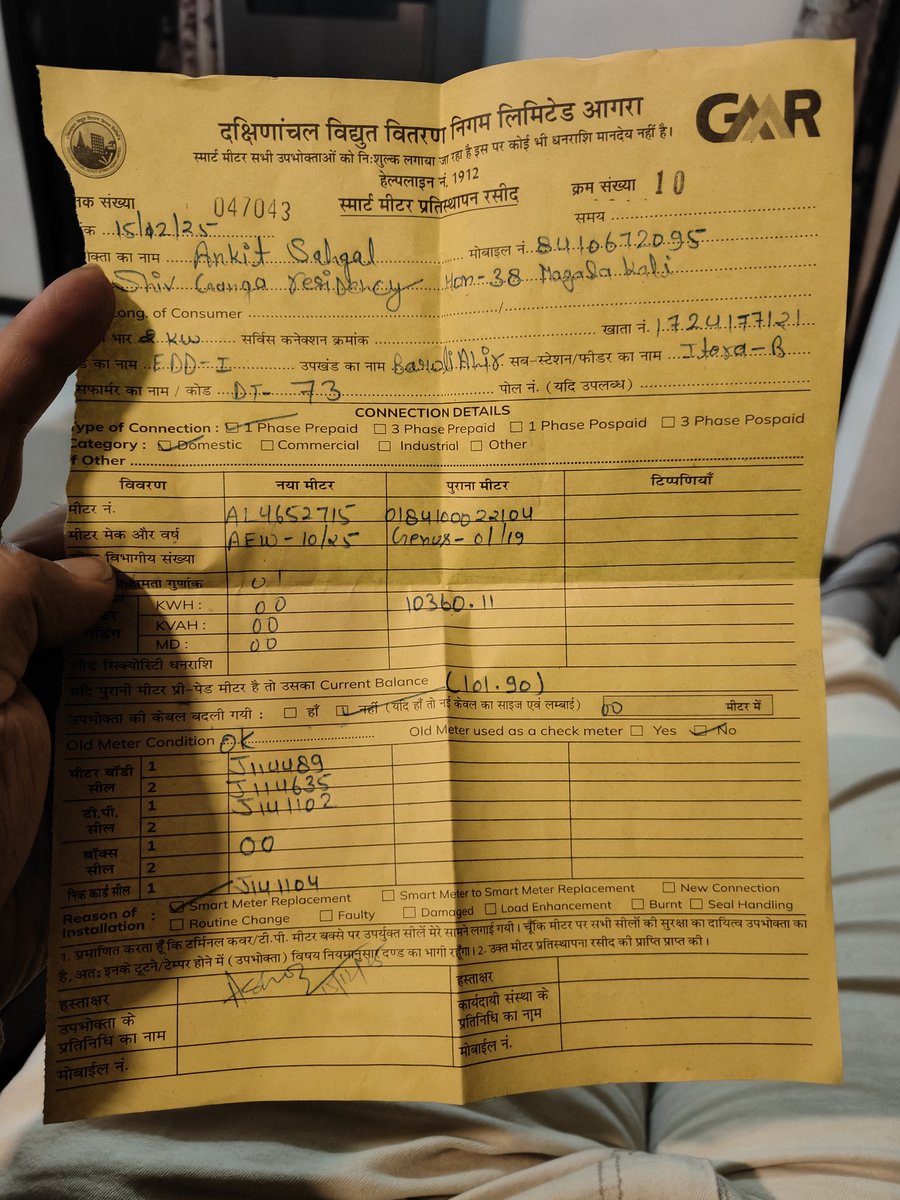 दक्षिणांचल विद्युत वितरण निगम लिमिटेड आगरा
GMR
स्मार्ट मीटर सभी उपभोक्ताओं को निःशुल्क लगाया जा रहा है इस पर कोई भी धनराशि मानदेय नहीं है।
हेल्पलाइन नं. 1912
क संख्या 047043 स्मार्ट मीटर प्रतिस्थापन रसीद क्रम संख्या 10
क 15/12/25 समय
क्ता का नाम Ankit Sahgal मोबाइल नं. 8410672095
Shiv Ganga residency Hon-38 Magada Kali
Long. of Consumer /
भार 2 KW सर्विस कनेक्शन क्रमांक खाता नं. 1724177121
का नाम EDD-I उपखंड का नाम Baroli Ahir सब-स्टेशन/फीडर का नाम Itora-B
सफार्मर का नाम / कोड DT-73 पोल नं. (यदि उपलब्ध)
CONNECTION DETAILS
Type of Connection : 1 Phase Prepaid 3 Phase Prepaid 1 Phase Pospaid 3 Phase Pospaid
Category : Domestic Commercial Industrial Other
f Other
विवरण नया मीटर पुराना मीटर टिप्पणियाँ
मीटर नं. AL4652715 0184100022104
मीटर मेक और वर्ष AEW-10/25 Genus-01/19
विभागीय संख्या
क्षमता गुणांक 01
KWH : 00 10360.11
रीडिंग KVAH : 00
MD : 00
लोड सिक्योरिटी धनराशि
यदि पुरानी मीटर प्री-पेड मीटर है तो उसका Current Balance (101.90)
उपभोक्ता की केबल बदली गयी : हाँ नहीं (यदि हाँ तो नई केवल का साइज एवं लम्बाई) 00 मीटर में
Old Meter Condition OK Old Meter used as a check meter Yes No
मीटर बॉडी सील 1 J114489
2 J114635
टी.पी. सील 1 J141102
2
बॉक्स सील 1 00
2
निक कार्ड सील 1 J141104
Reason of Installation : Smart Meter Replacement Smart Meter to Smart Meter Replacement New Connection
Routine Change Faulty Damaged Load Enhancement Burnt Seal Handling
1. प्रमाणित करता हूँ कि टर्मिनल कवर/टी.पी. मीटर बक्से पर उपर्युक्त सीलें मेरे सामने लगाई गयी। चूँकि मीटर पर सभी सीलों की सुरक्षा का दायित्व उपभोक्ता का
है, अतः इनके टूटने/टेम्पर होने में (उपभोक्ता) विषय नियमानुसार दण्ड का भागी रहूँगा। 2. उक्त मीटर प्रतिस्थापना रसीद की प्राप्ति प्राप्त की।
हस्ताक्षर हस्ताक्षर
उपभोक्ता के प्रतिनिधि का नाम कार्यदायी संस्था के प्रतिनिधि का नाम
मोबाईल नं. मोबाईल नं.